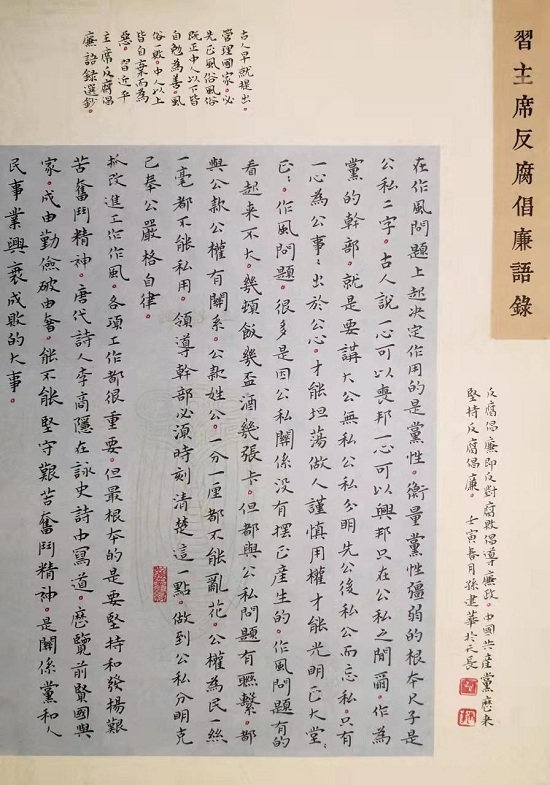 習主席反腐倡廉語錄
反腐倡廉即反對腐敗倡導廉政。中國共產黨歷来
堅持反腐倡廉。 壬寅春月孫建華於天長
古人早就提出。
營理國家。必
先正風俗風俗
既正中人以下皆
自勉為善。風
俗一敗。中人以上
皆自棄而為
惡。習近平
主席反腐倡
廉語錄選鈔
在作風問題上起決定作用的是黨性。衡量黨性彊弱的根本尺子是
公私二字。古人說一心可以喪邦一心可以興邦只在公私之間爾。作為
黨的幹部。就是要講大公無私公私分明先公後私公而忘私。只有
一心為公事〻出於公心。才能坦蕩做人謹慎用權才能光明正大堂〻
正〻。作風問題。很多是因公私關係没有摆正產生的。作風問題有的
看起來不大。幾頓飯幾盃酒幾張卡。但都與公私問題有聯繫。都
與公款公權有關系。公款姓公。一分一厘都不能亂花。公權為民一絲
一毫都不能私用。領導幹部必須時刻清楚這一點。做到公私分明克
己奉公嚴格自律。
抓改進工作作風。各項工作都很重要。但最根本的是要堅持和發揚艱
苦奮鬥精神。唐代詩人李商隱在詠史詩中寫道。歷覽前賢國與
家。成由勤儉破由奢。能不能堅守艱苦奮鬥精神。是關係黨和人
民事業興衰成敗的大事。